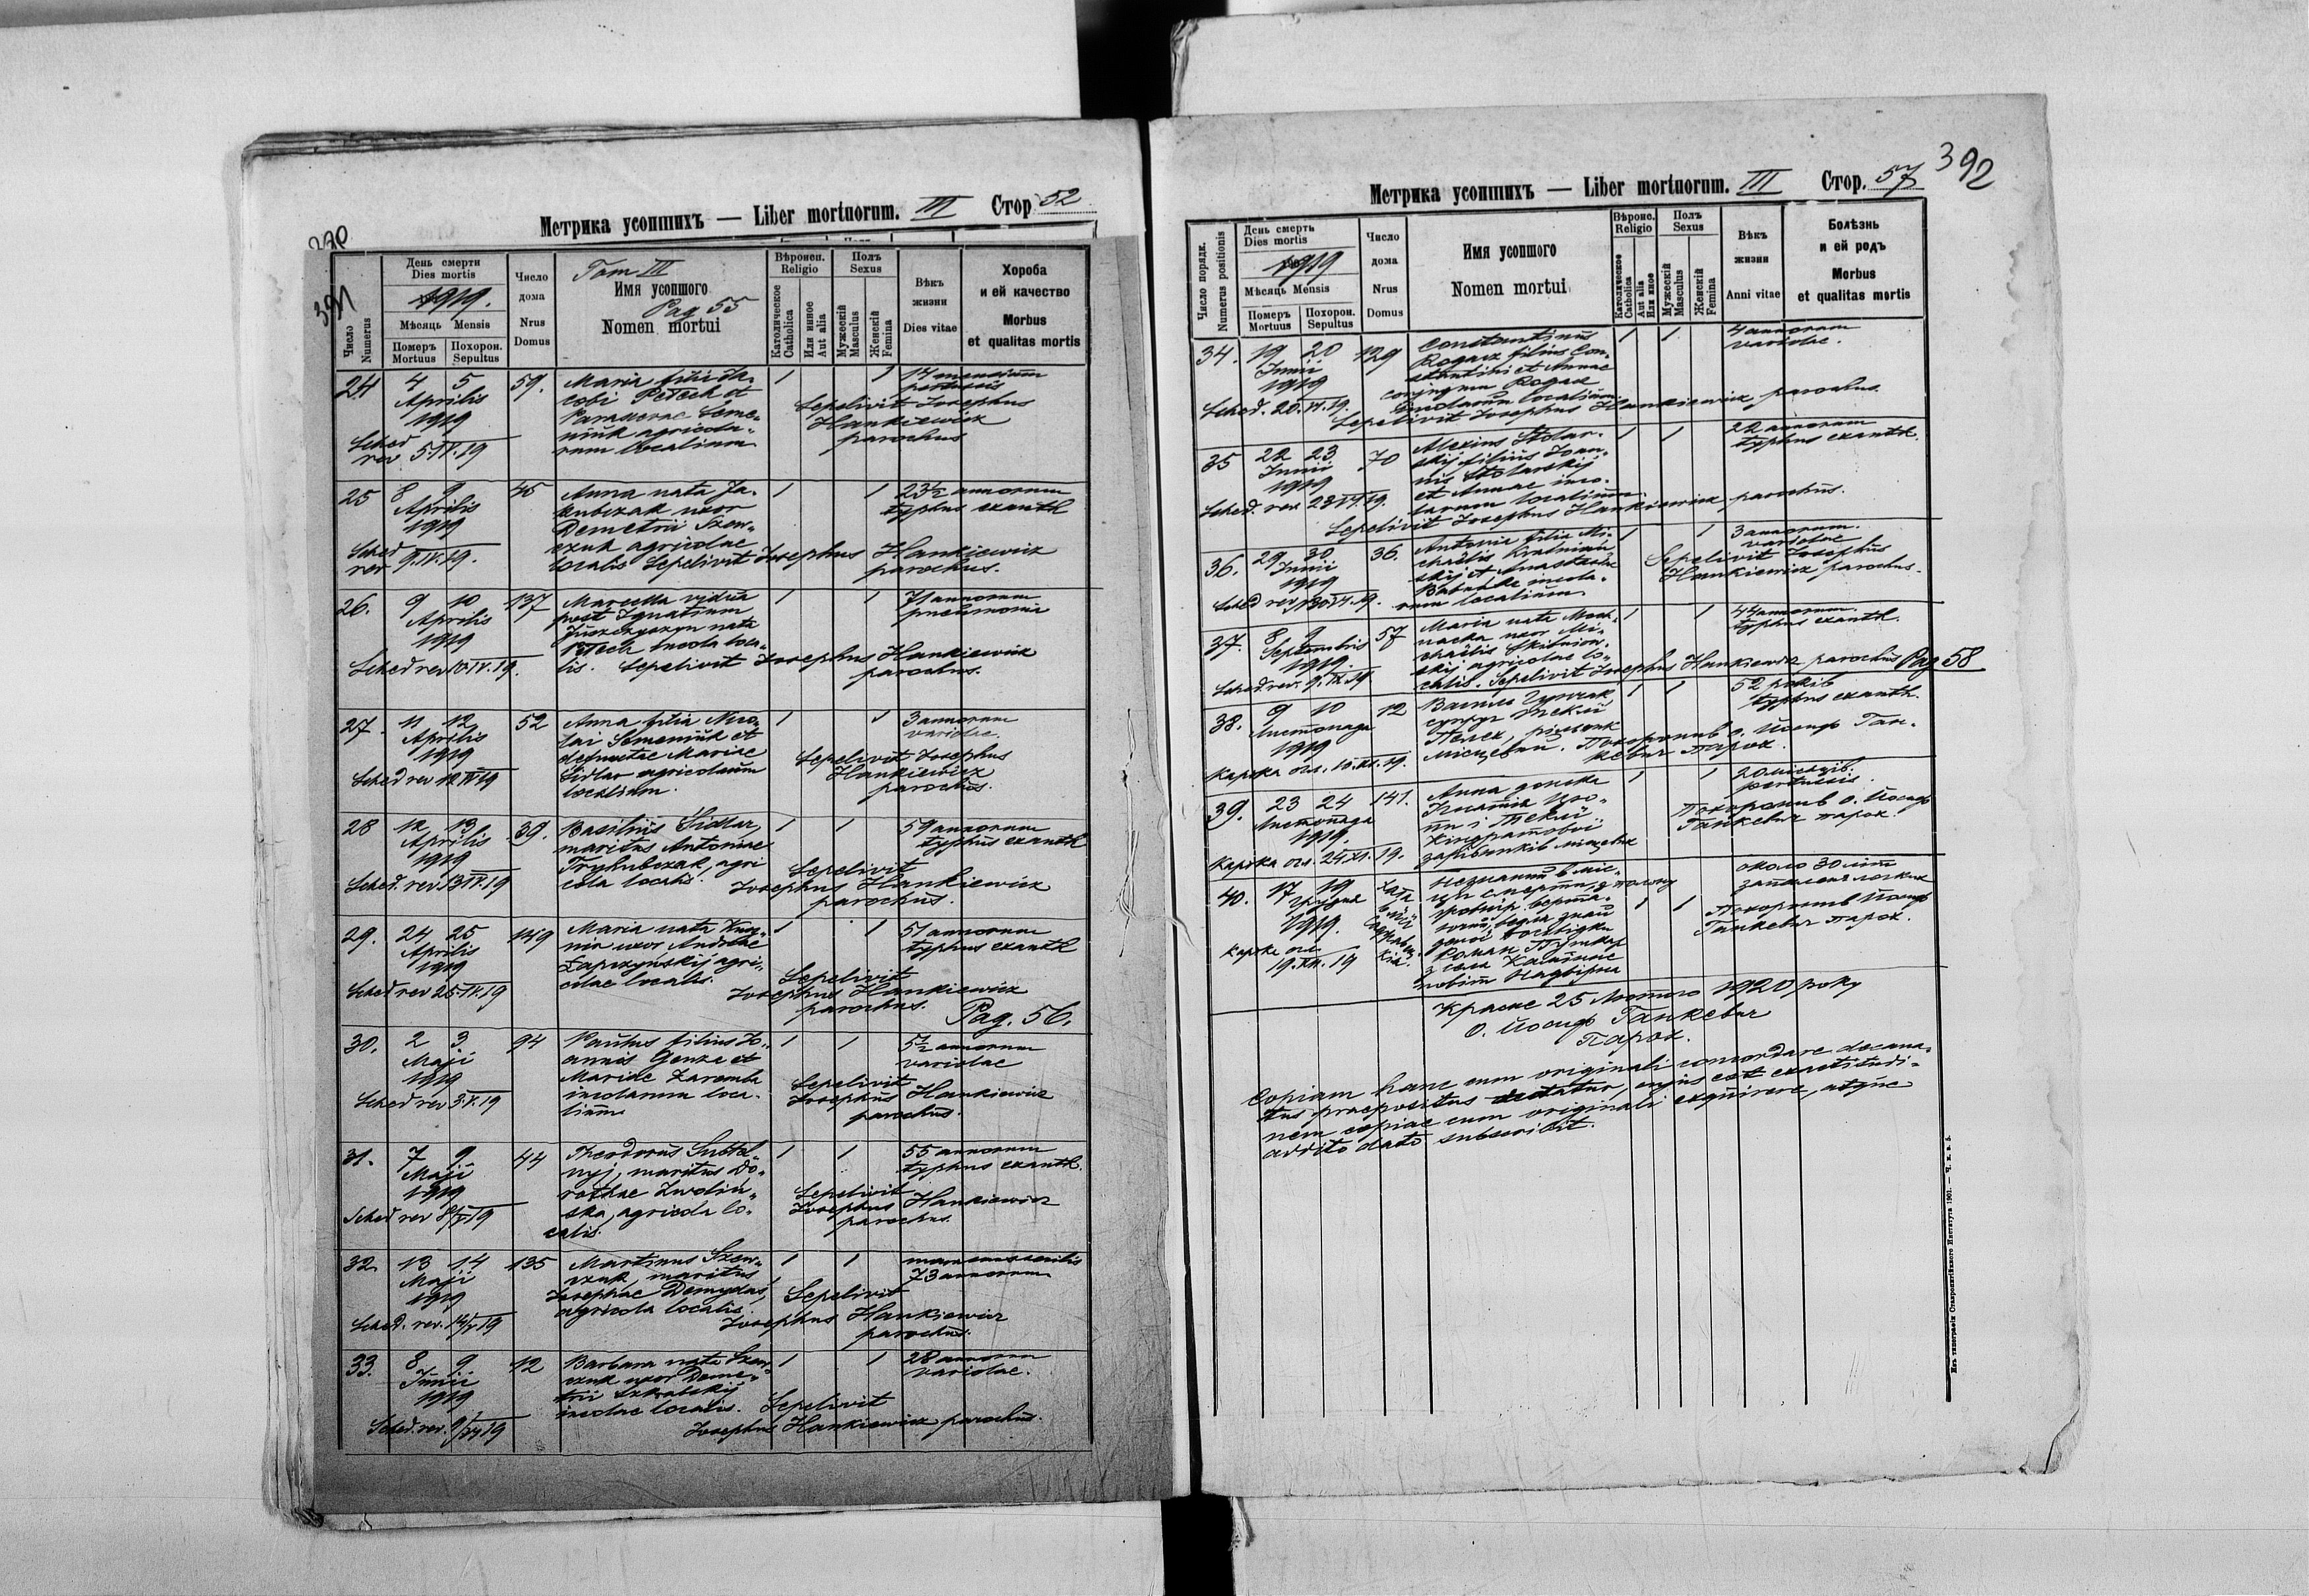 Метрика усопшихъ — Liber mortuorum. III Стор 52
391
Число
Numerus
День смерти
Dies mortis
1919.
Мѣсяць Mensis
Померъ
Mortuus
Похорон.
Sepultus
Число
дома
Nrus
Domus
Tom III
Имя усопшого
Pag 55
Nomen mortui
Вѣроисп.
Religio
Католическое
Catholica
Или инное
Aut alia
Полъ
Sexus
Мужескій
Masculus
Женскій
Femina
Вѣкъ
жизни
Dies vitae
Хороба
и ей качество
Morbus
et qualitas mortis
24 4 5 59. Maria filia Ja- 1 1 14 mensium
Aprilis cobi Petech et pertussis
1919 Parascevae Seme- Sepelivit Josephus
niuk agricola- Hankiewicz
Sched rev 5.IV.19 rum localium parochus
25 8 9 45 Anna nata Ja- 1 1 23½ annorum
Aprilis kubczak uxor typhus exanth
1919 Demetrii Szew-
czuk agricolae
Sched rev 9.IV.19. localis Sepelivit Josephus Hankiewicz
parochus.
26. 9 10 137 Marcella vidua 1 1 71 annorum
Aprilis post Ignatium pneumonia
1919 nata
Petech incola loca-
Sched rev 10 IV.19. lis. Sepelivit Josephus Hankiewicz
parochus.
27. 11 12 52 Anna filia Nico- 1 1 3 annorum
Aprilis lai Semeniuk et variolae.
1919 defunctae Mariae Sepelivit Josephus
Sidlar agricolarum Hankiewicz
Sched rev 12 IV 19 localium. parochus.
28 12 13 39. Basilius Sidlar 1 1 59 annorum
Aprilis maritus Antoniae typhus exanth
1919 Tryhubczak, agri Sepelivit
Sched. rev. 13 IV.19 cola localis. Josephus Hankiewicz
parochus.
29. 24 25 149 Maria nata 1 1 51 annorum
Aprilis uxor Andreae typhus exanth
1919 Łapczyńskij agri- Sepelivit
Sched rev 25.IV.19 colae localis. Josephus Hankiewicz
parochus. Pag. 56.
30. 2 3 94 Paulus filius Jo- 1 1 5½ annorum
Maji annis Genza et variolae
1919 Mariae Zaremba Sepelivit
incolarum loca- Josephus Hankiewicz
Sched rev 3.V.19 lium parochus.
31. 7 9 44 Theodorus Subtel- 1 1 55 annorum
Maji nyj, maritus Do- typhus exanth.
1919 rotheae Zwolin- Sepelivit
ska, agricola lo- Josephus Hankiewicz
Sched rev 8/V 19 calis. parochus.
32. 13 14 135 Martinus Szew- 1 1 marasmus senilis
Maji czuk, maritus 73 annorum
1919 Josephae Demydas, Sepelivit
agricola localis. Josephus Hankiewicz
Sched. rev. 14/V 19 parochus.
33. 8 9 12 Barbara nata Szew- 1 1 28 annorum
Junii czuk uxor Deme- variolae.
1919 trii
incolae localis. Sepelivit
Sched. rev. 9/VI 19 Josephus Hankiewicz parochus.
Метрика усопшихъ — Liber mortuorum. III Стор. 57
392
Число порядк.
Numerus positionis
День смерть
Dies mortis
1919
Мѣсяць Mensis
Померъ
Mortuus
Похорон.
Sepultus
Число
дома
Nrus
Domus
Имя усопшого
Nomen mortui
Вѣроис.
Religio
Католическое
Catholica
Aut alia
Или иное
Полъ
Sexus
Мужескій
Masculus
Женскій
Femina
Вѣкъ
жизни
Anni vitae
Болѣзнь
и ей родъ
Morbus
et qualitas mortis
34. 19 20 129 Constantinus 1 1 4 annorum
Junii Rogacz filius Con- variolae.
1919 stantini et Annae
conjugum Rogacz
Sched. 20.VI.19. incolarum localium
Sepelivit Josephus Hankiewicz parochus.
35 22 23 70 Alexius Stolar- 1 1 22 annorum
Junii skij filius Joan- typhus exanth.
1919 nis Stolarskij
et Annae inco-
Sched. rev 23 VI.19. larum localium.
Sepelivit Josephus Hankiewicz parochus.
36. 29 30 36. Antonia filia Mi- 1 1 3 annorum.
Junii chaëlis variolae
1919 skij et Anastasiae Sepelivit Josephus
incola- Hankiewicz parochus.
Sched rev 30 VI.19. rum localium
37. 8 9 57 Maria nata 1 1 44 annorum.
Septembris uxor Mi- typhus exanth.
1919. chaëlis
skij agricolae lo-
Sched. rev. 9.IX.19 calis. Sepelivit Josephus Hankiewicz parochus Pag 58
38. 9 10 12 Василь 1 1 52 років
Листопада супруг Теклї typhus exanth.
1919 Петех, рільник
Картка огл. 10.XI.19. місцевий. Похоронив о. Йосиф Ган-
кевич парох.
39. 23 24 141. Анна донька 1 1 20 місяців.
Листопада Ігнатія pertussis.
1919. і Теклї Похоронив о. Йосиф
Кіндратової Ганкевич парох.
Картка огл. 24.XI.19. зарібників місцевих
40. 17 19 Хата незнаний в міс- около 30 літ
Грудня ци смерти, з полону запаленя легких
1919. 1 1 Похоронив Йосиф
Ганкевич парох.
Картка огл. Роман
19.XII.19 з села
повіт Надвірна
Красне 25 Лютого 1920 року
о. Йосиф Ганкевич
Парох.
Copiam hanc cum originali concordare decana-
tus praepositus testatur, cujus est exactitudi-
nem copiae cum originali exquirere, atque
addito dato subscribit.
Изъ типографіи Ставропигійского Института 1901.